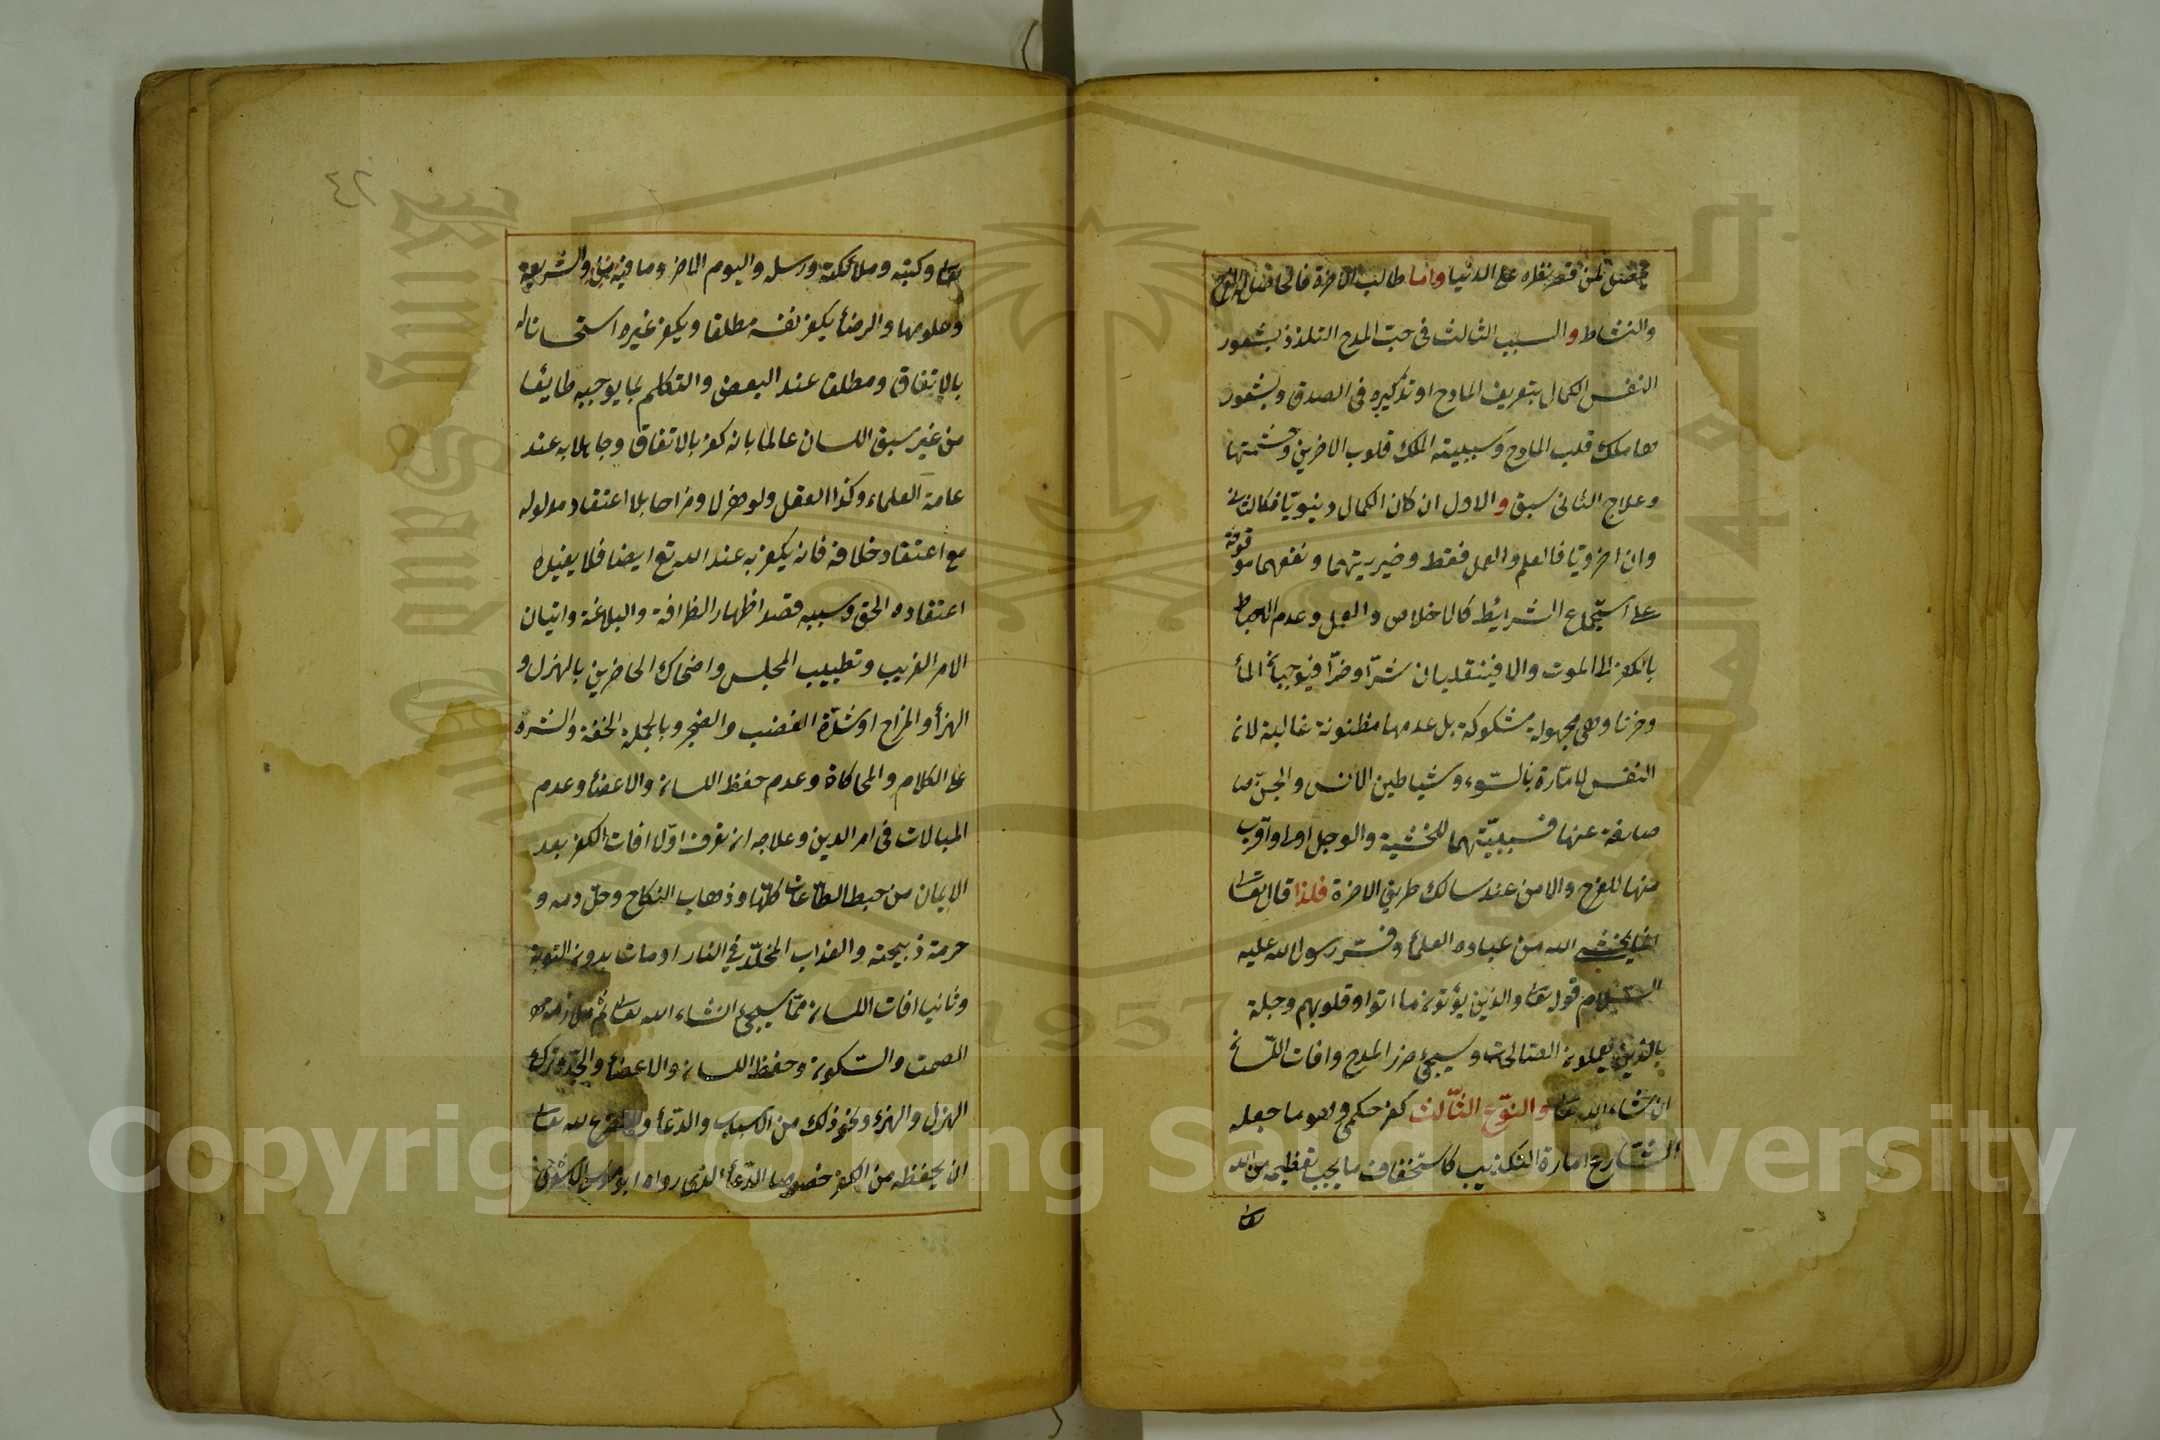 يختص لمن قصر نظره على الدنيا واما طالب الآخرة فانما
والنشاط والسبب الثالث فى حب المدح التلذذ بشعور
النفس الكمال بتعريف المادح او تذكيره فى الصدق وبشعور
ها ملك قلب المادح وسببيته لملك قلوب الاخرين وحشمتها
وعلاج الثانى سبق والاول ان كان الكمال دنيويا فكالثانى
وان اخرويا فالعلم والعمل فقط وخيريتهما ونفعهما موقوفة
على استجماع الشرايط كالاخلاص والعمل وعدم الاحباط
بالكفر الى الموت والا فينقلبان شرّا وضرّا فيوجبان المًا
وحزنا وهى مجهولة مشكوكة بل عدمها مظنونة غالبة لان
النفس لامّارة بالسّوء وشياطين الانس والجنّ
صارفة عنها فسببيّتهما للخشية والوجل اولى واقرب
منها للفرح والامن عند سالك طريق الاخرة فلذا قال تعالى
انما يخشى الله من عباده العلماء وفسّر رسول الله عليه
السلام قوله تعالى والذين يؤتون ما اتوا وقلوبهم وجلة
بالذين يعملون الصّالحات وسيجئ ضرر المدح وافات اللسان
ان شاء الله تعالى والنّوع الثّالث كفر حكمى وهو ما جعله
الشّارع امارة التكذيب كاستخفاف ما يجب تعظيمه من الله
تعالى
٤٢
تعالى وكتبه وملائكته ورسله واليوم الاخر وما فيه والشريعة
وعلومها والرضاء بكفر نفسه مطلقا وبكفر غيره استحسانا له
بالاتفاق ومطلقا عند البعض والتكلم بما يوجبه طايعًا
من غير سبق اللسان عالما بانه كفر بالاتفاق وجاهلا به عند
عامة العلماء وكذا الفعل ولو هزلا ومزاحا بلا اعتقاد مدلوله
مع اعتقاد خلافه فانه يكفر به عند الله تع ايضا فلا يفيده
اعتقاده الحق وسببه قصد اظهار الظرافة والبلاغة واتيان
الامر الغريب وتطييب المجلس واضحاك الحاضرين بالهزل و
الهزأ والمزاح او شدّة الغضب والضجر وبالجملة الخفة والشره
على الكلام والمحاكاة وعدم حفظ اللسان والاعضاء وعدم
المبالات فى امر الدين وعلاجه ان تعرف اوّلا افات الكفر بعد
الايمان من حبط الطّاعات كلّها وذهاب النكاح وحلّ دمه و
حرمة ذبيحته والعذاب المخلّد فى النار او مات بدون التوبة
وثانيا افات اللسان ممّا سيجئ ان شاء الله تعالى ثم ملازمة
الصمت والسّكون وحفظ اللسان والاعضاء والجدّ وترك
الهزل والهزء ونحو ذلك من الاسباب والدّعاء والتضرع لله تعالى
ان يحفظه من الكفر خصوصا الدّعاء الذى رواه ابو موسى الاشعرى
Copyright © King Saud University
1957